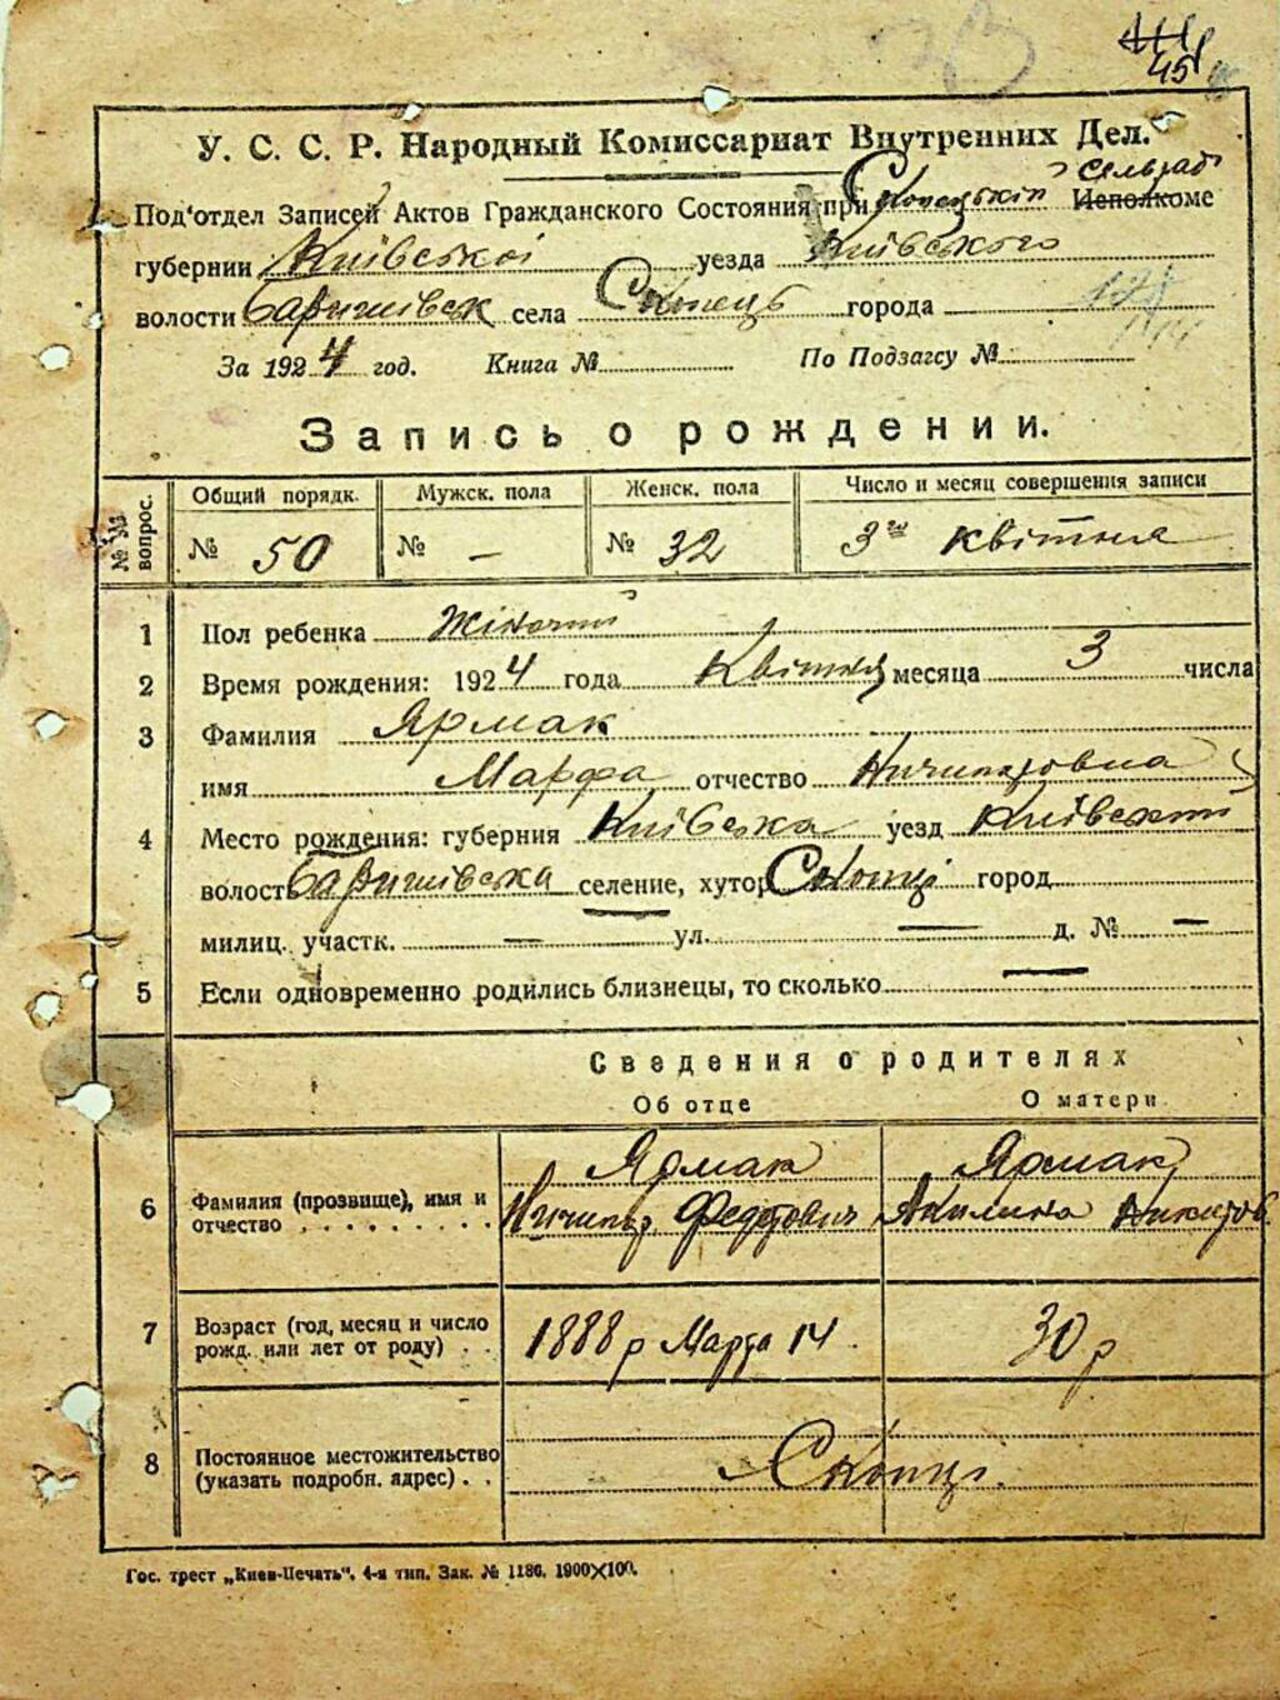 45
У. С. С. Р. Народный Комиссариат Внутренних Дел.
Сельрад
Под'отдел Записей Актов Гражданского Состояния при Скопецькій Исполкоме
губернии Київської уезда Київського
волости Баришівськ села Скопець города
За 1924 год. Книга № По Подзагсу №
Запись о рождении.
№№ вопрос. Общий порядк. Мужск. пола Женск. пола Число и месяц совершения записи
№ 50 № — № 32 3го квітня
1 Пол ребенка Жіночий
2 Время рождения: 1924 года Квітня месяца 3 числа
3 Фамилия Ярмак
имя Марфа отчество Ничипоровна
4 Место рождения: губерния Київська уезд Київский
волость Баришівська селение, хутор Скопці город
милиц. участк. — ул. — д. № —
5 Если одновременно родились близнецы, то сколько —
Сведения о родителях
Об отце О матери
Ярмак Ярмак
6 Фамилия (прозвище), имя и отчество Ничипор Федотович Акилина Никитов.
7 Возраст (год, месяц и число рожд. или лет от роду) 1888 р Марта 14 30 р
8 Постоянное местожительство (указать подробн. адрес) Скопці.
Гос. трест „Киев-Печать". 4-я тип. Зак. № 1186. 1900×100.